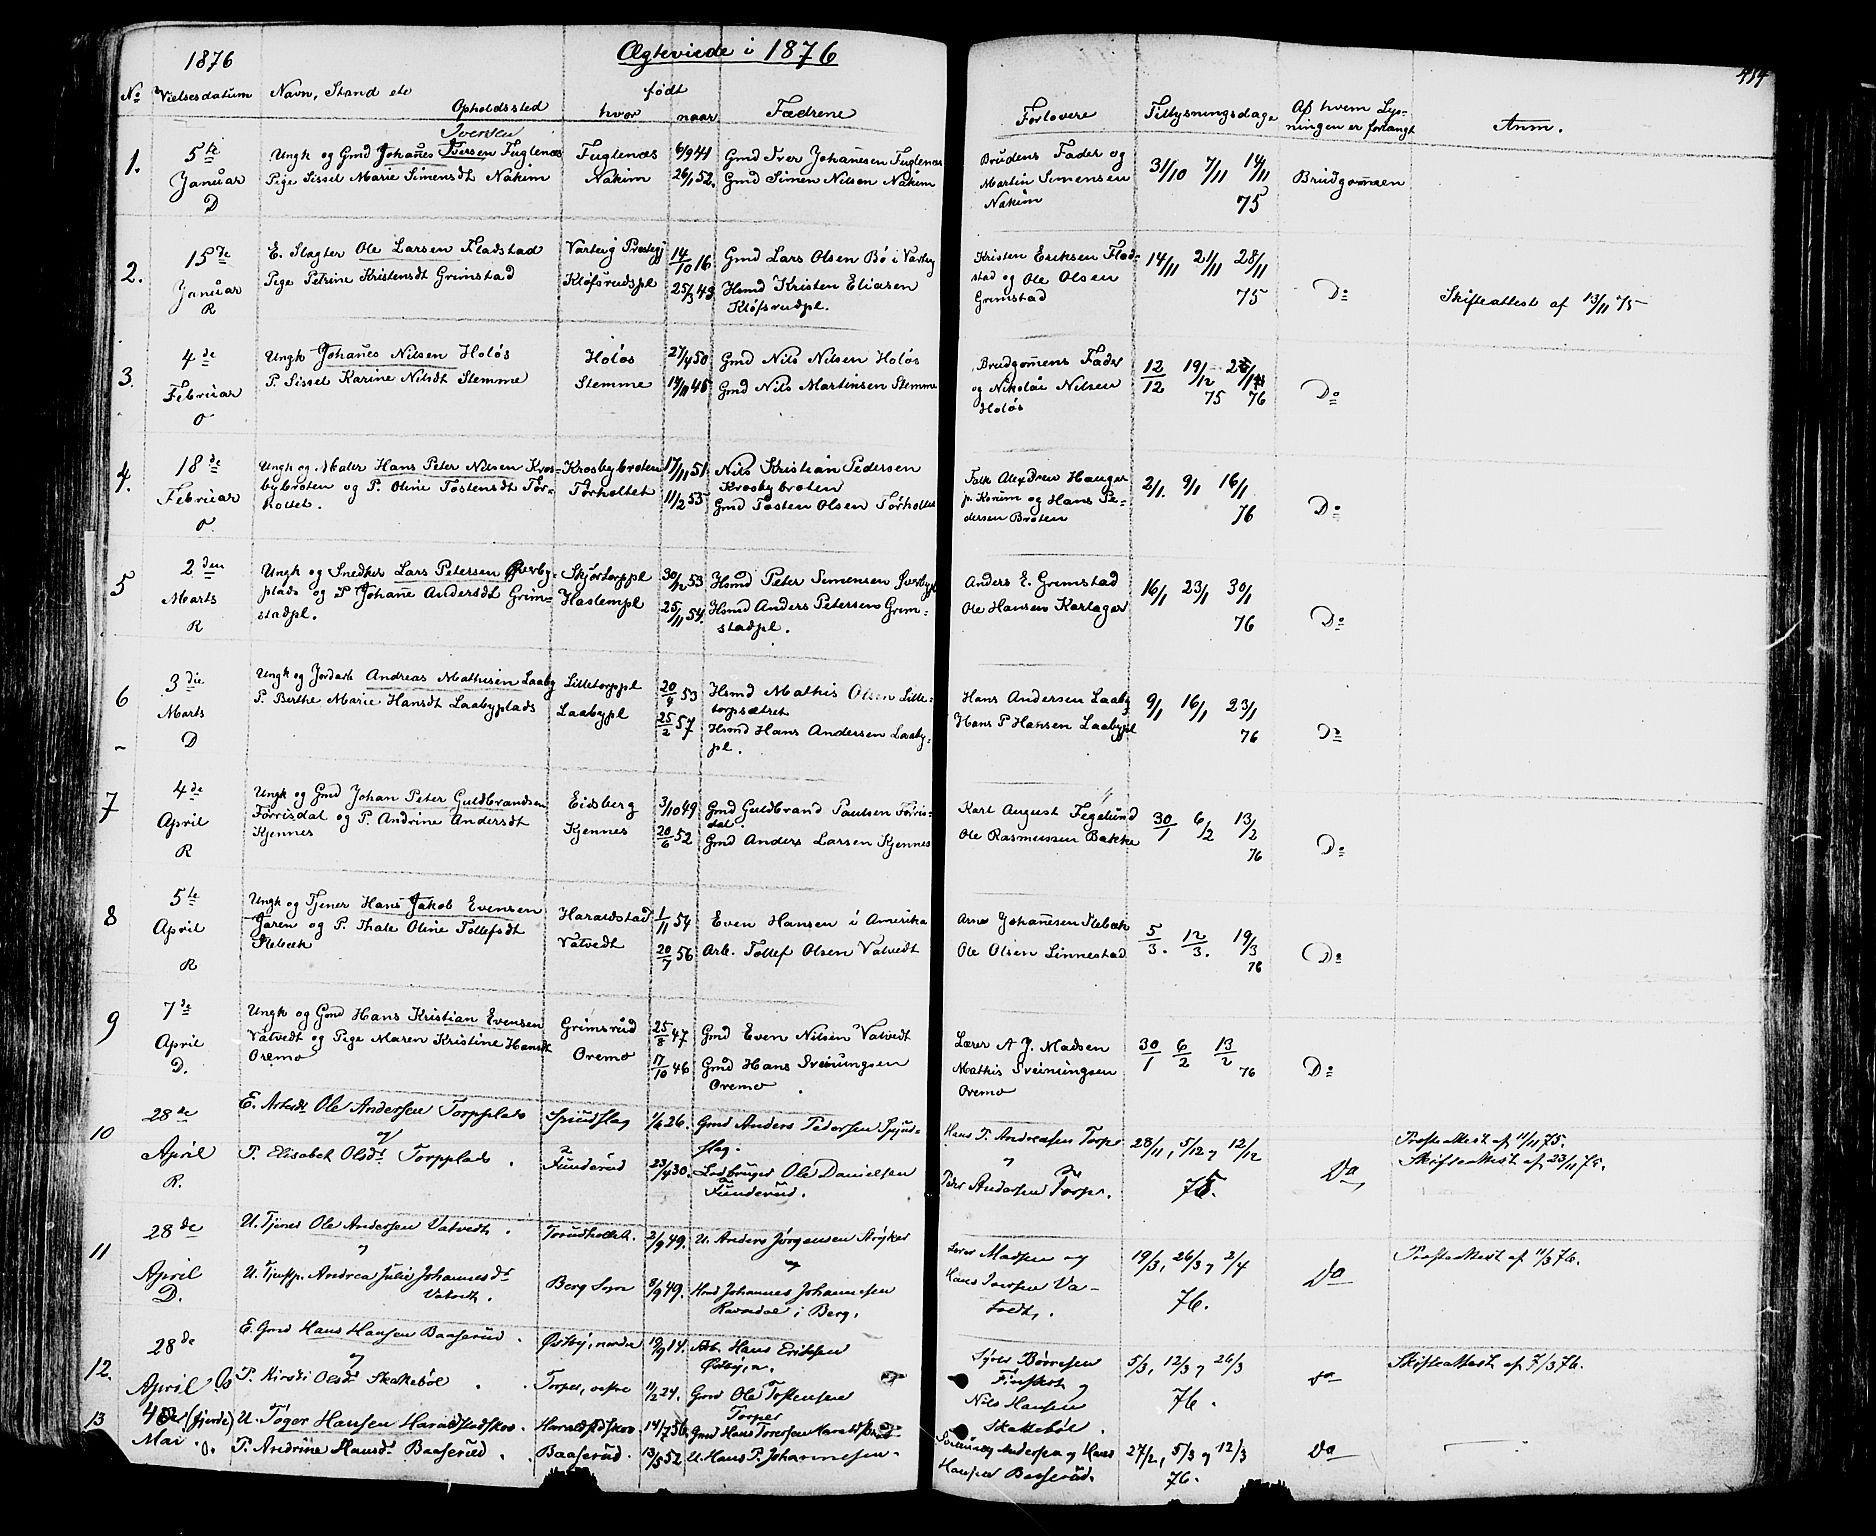 1876
Ægteviede i 1876
No Vielsesdatum Navn, Stand etc Opholdssted født hvor naar Fædrene Forlovere Tillysningsdage Af hvem Lysningen er forlangt Anm.
1. 5te Januar D
Iversen
Ungk og Gmd Johannes Iversen Fuglenæs Fuglenæs 6/9 41 Gmd Iver Johannesen Fuglenæs
Pige Sissel Marie Simensdt Nakim Nakim 26/1 52. Gmd Simen Nilsen Nakim
Brudens Fader og
Martin Simensen
Nakim
31/10 7/11 14/11
75
Brudgommen
2. 15de Januar R
E. Slagter Ole Larsen Fladstad Varteig Præstegj 14/10 16 Gmd Lars Olsen Bø i Vartg
Pige Petrine Kristensdt Grimstad Kløfsrudspl 25/3 43 Hsmd Kristen Eliasen
Kløfsrudpl.
Kristen Eriksen Flad-
stad og Ole Olsen
Grimstad
14/11 21/11 28/11
75
Do
Skifteattest af 13/11 75
3. 4de Februar O
Ungk Johannes Nilsen Holøs Holøs 27/4 50 Gmd Nils Nilsen Holøs
P. Sissel Karine Nilsdt Stemme Stemme Gmd Nils Martinsen Stemme
Brudgommens Fader
og Nikolai Nilsen
Holøs
12/12 19/12
75 76
Do
4. 18de Februar O.
Ungk og Maler Hans Peter Nilsen Kros- Krosbybroten 17/11 51. Nils Kristian Pedersen
bybroten og P. Oline Tostensdt Tør- Tørholtet 11/2 55 Krosbybroten
holtet. Gmd Tosten Olsen Tørholtet
Haugar
p. Korum og Hans Pe-
dersen Broten
2/1. 9/1 16/1
76
Do
5 2den Marts R
Ungk og Snedker Lars Petersen Øverby- Skjortorppl 53 Hsmd Peter Simensen Øverbypl
plads og P Johanne Andersdt Grim- Haslempl 25/11 54. Hsmd Anders Petersen Grim-
stadpl. stadpl.
Anders E. Grimstad
Ole Hansen Karlager
16/1 23/1 30/1
76
Do
6 3die Marts D
Ungk og Jordarb Andreas Mathisen Laaby Lilletorppl 20/9 53 Hsmd Mathis Olsen Lille-
P. Berthe Marie Hansdt Laabyplads Laabypl 25/2 57 torpsætret
Hsmd Hans Andersen Laaby-
pl.
Hans Andersen Laaby
Hans P Hansen Laabypl
9/1 16/1 23/1
76
Do
7 4de April R
Ungk og Gmd Johan Peter Guldbrandsen Eidsberg 3/10 49 Gmd Guldbrand Paulsen Førris-
Førrisdal og P. Andrine Andersdt Kjennes 20/6 52 dal
Kjennes Gmd Anders Larsen Kjennes
Karl August Fegelund
Ole Rasmussen Bakke
30/1 6/2 13/2
76
Do
8 5te April R
Ungk og Tjener Hans Jakob Evensen Haraldstad 1/11 54 Even Hansen i Amerika
Jaren og P. Thale Oline Tollefsdt Vatvedt 20/7 56 Arb. Tollef Olsen Vatvedt
Slebæk
Arne Johannesen Slebæk
Ole Olsen Linnestad
5/3. 12/3. 19/3
76
Do
9 7de April D.
Ungk og Gmd Hans Kristian Evensen Grimsrud 25/8 47 Gmd Even Nilsen Vatvedt
Vatvedt og Pige Maren Kristine Hansdt Oremo 17/10 46 Gmd Hans Sveinungsen
Oremo Oremo
Lærer A J. Madsen
Mathis Sveinungsen
Oremo
30/1 6/2 13/2
76
Do
10 28de April R.
E. Arbeidr Ole Andersen Torpplads Spiudslag 26. Gmd Anders Pedersen Spiud-
og slag.
P. Elisabet Olsdr Torpplads. Funderud 23/4 30. Ole Danielsen
Funderud.
Hans P. Andreasen Torpe
og
Peder Andersen Torpe.
28/11, 5/12 og 12/12
75.
Do
Præsteattest af 11/11 75.
Skifteattest af 23/11 75.
11 28de April D.
U. Tjener Ole Andersen Vatvedt. 2/9 49. U. Anders Jørgensen Stryker
og
U. Tjenstp. Andrea Julie Johannesdr Berg Sogn 5/9 49. Hmd Johannes Johannesen
Vatvedt. Ravndal i Berg.
Lærer Madsen og
Hans Iversen Va-
tvedt.
19/3, 26/3 og 2/4
76.
Do
Præsteattest af 11/3 76.
12. 28de April
E. Gmd Hans Hansen Baaserud. Østby, nordre 14. Arb. Hans Eriksen
og Østby, n.
P. Kirsti Olsdr Skakkebøl. Torper, vestre 11/2 24. Gmd Ole Tostensen
Torper
Børresen
og
Nils Hansen
Skakkebøl.
5/3, 12/3 og 26/3
76.
Do
Skifteattest af 7/3 76.
13 4de (fjerde) Mai O.
U. Tøger Hansen Haraldstadskov. Haraldstdskov. 14/7 56. Gmd Hans Torersen
P. Andrine Hansdr Baaserud. Baaserud. 13/5 52 U. Hans P. Johannesen.
Andersen og Hans
Hansen Baaserud.
27/2, 5/3 og 12/3
76.
Do